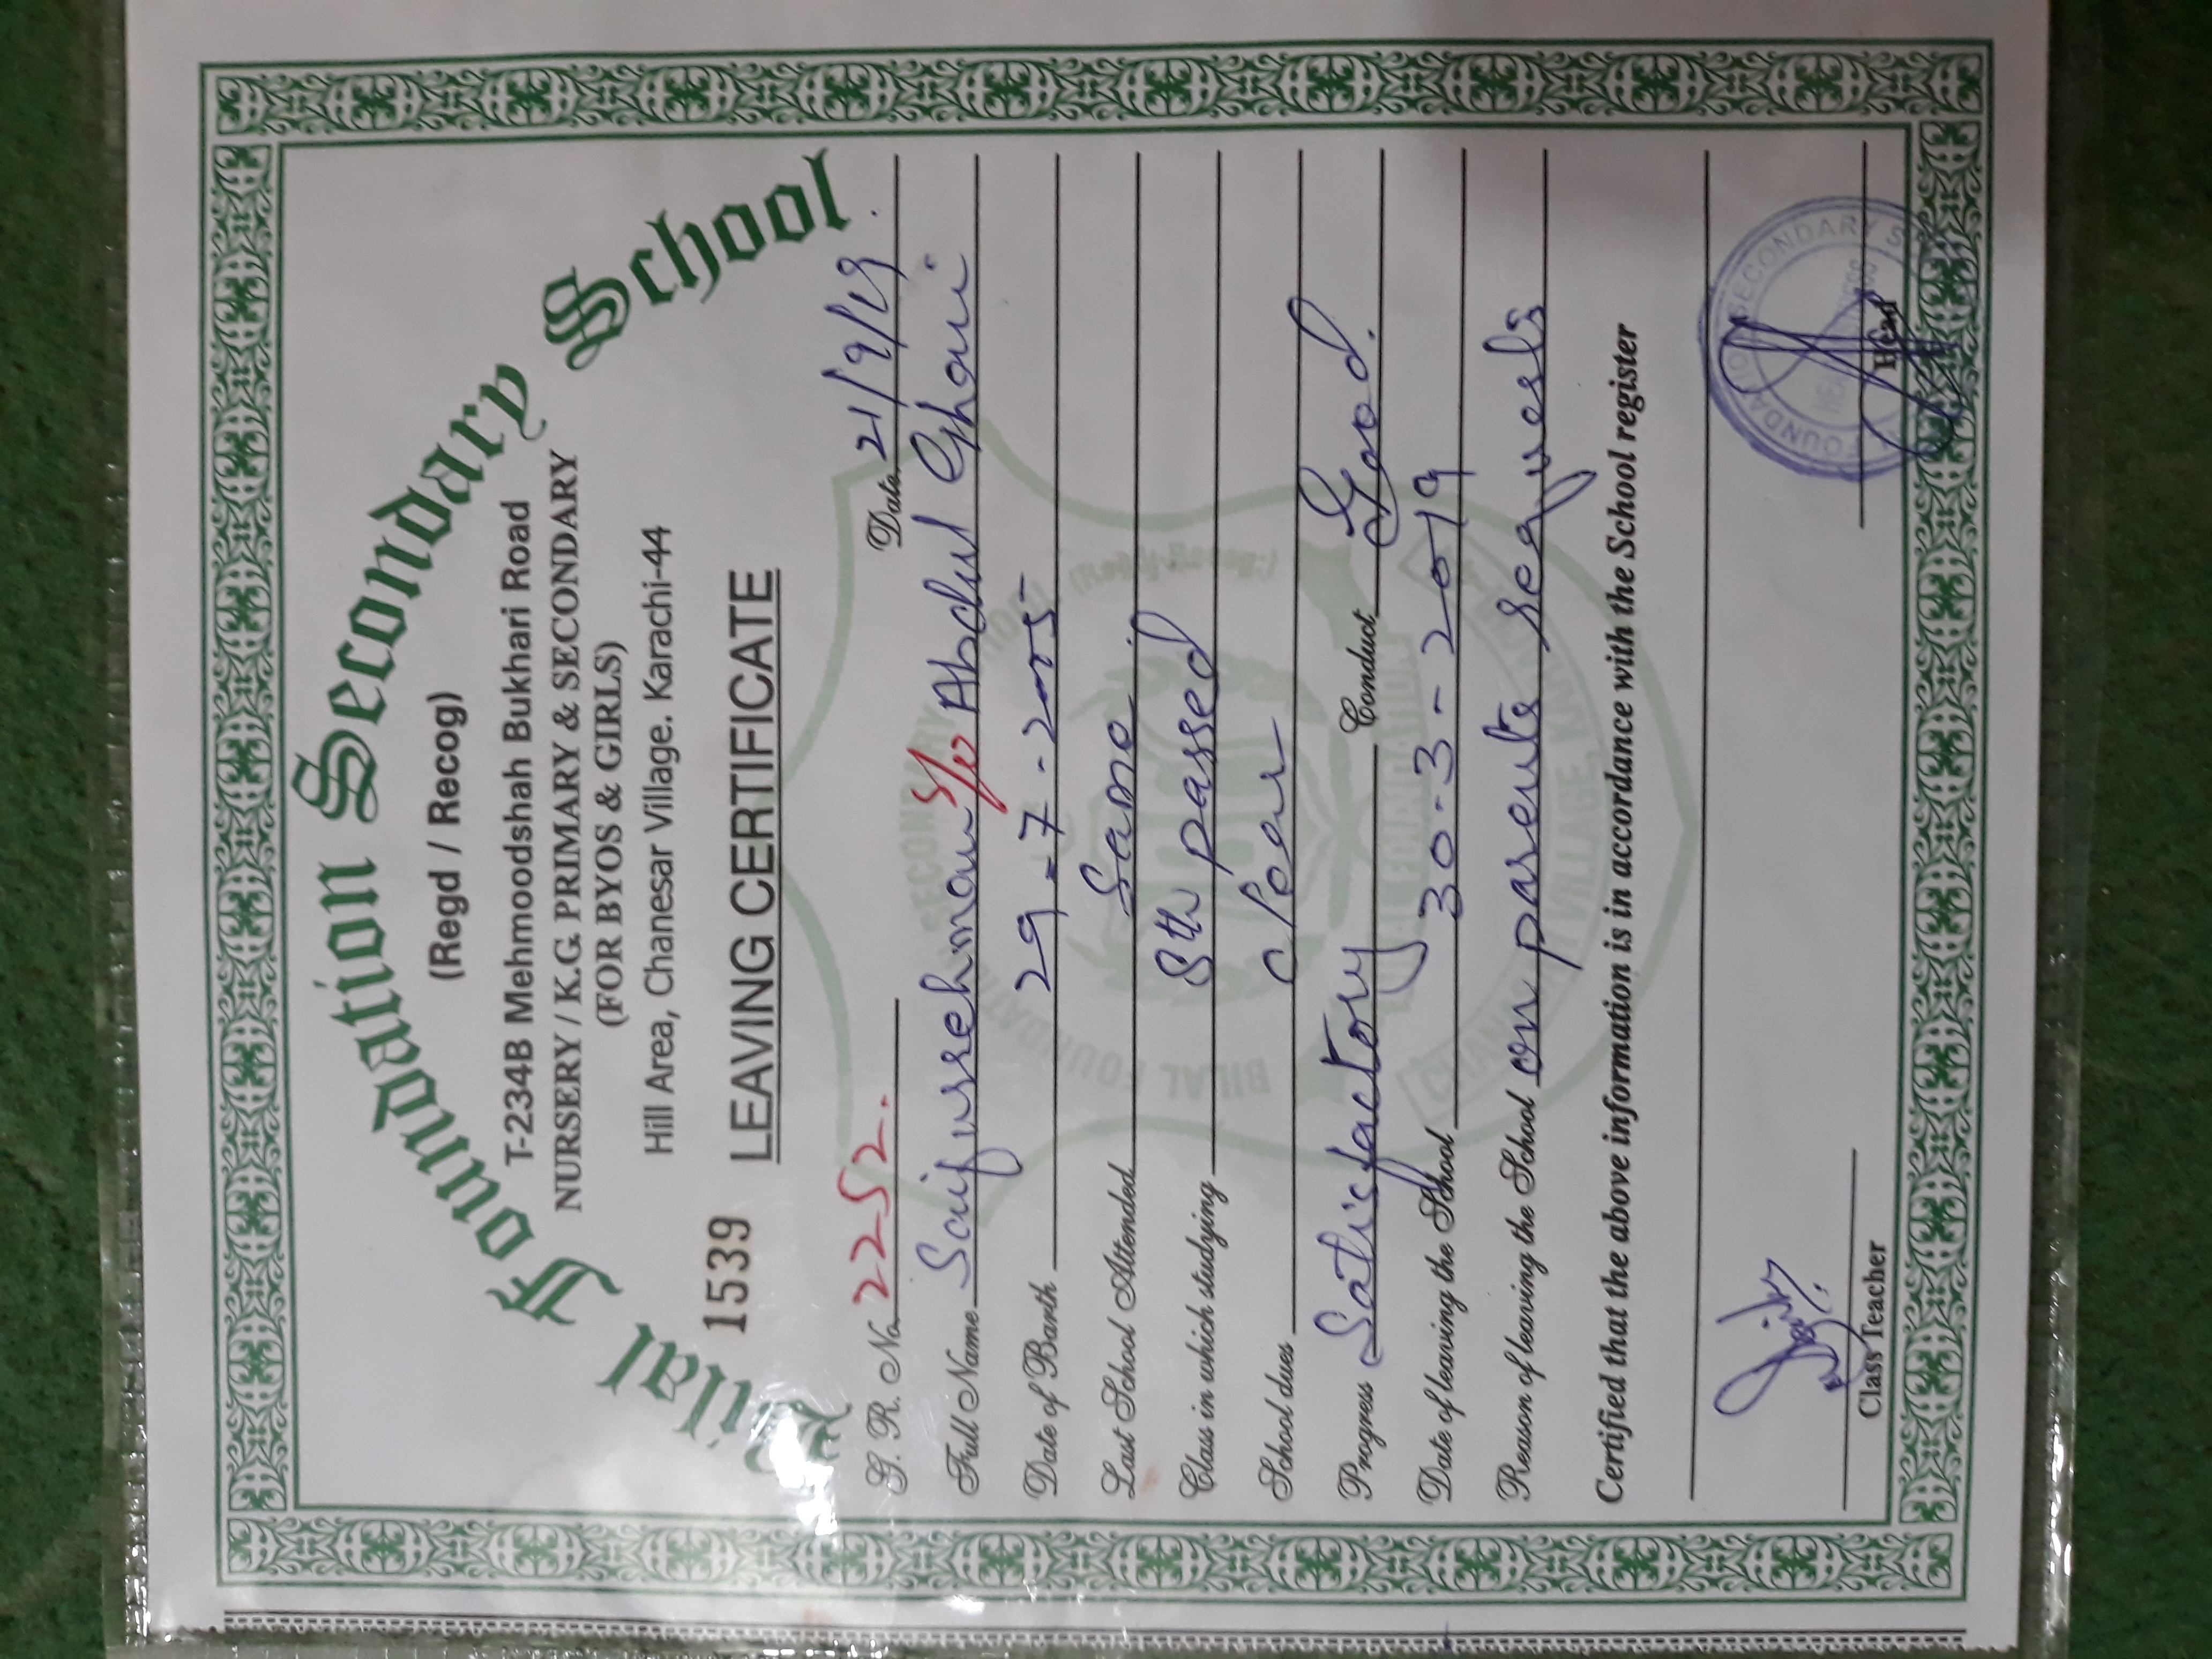 Bilal Foundation Secondary School
(Regd / Recog)
T-234B Mehmoodshah Bukhari Road
NURSERY / K.G. PRIMARY & SECONDARY
(FOR BYOS & GIRLS)
Hill Area, Chanesar Village. Karachi-44
1539 LEAVING CERTIFICATE
G. R. No. 2252. Date 21/9/19
Full Name Saifurrehman S/o Abdul Ghani
Date of Barth 29-7-2005
Last School Attended Same
Class in which studying 8th passed
School dues clear
Progress Satisfactory Conduct Good.
Date of leaving the School 30-3-2019
Reason of leaving the School on parents requests
Certified that the above information is in accordance with the School register
Class Teacher Head